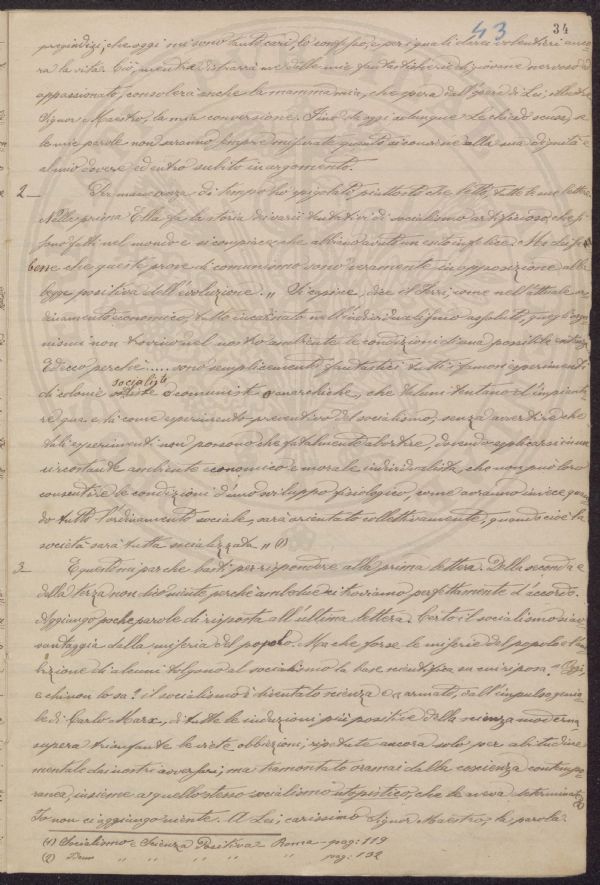 43 34
pregiudizi, che oggi mi sono tanto cari, lo confesso, e per i quali darei volentieri anco-
ra la vita. Ciò, mentre distrarrà me dalle mie fantasticherie di giovane nervoso ed
appassionato, consolerà anche la mamma mia, che spera dall'opera di Lei, illustre
Signor Maestro, la mia conversione. Fino da oggi adunque Le chiedo scusa, se
le mie parole non saranno sempre misurate quanto si conviene alla sua dignità e
al mio dovere ed entro subito in argomento.
2_ Per mancanza di tempo ho spigolato, piuttosto che letto, tutte le sue lettere.
Nella prima Ella fa la storia dei varii tentativi di socialismo artificioso, che si
sono fatti nel mondo e si compiace che abbiano avuto un esito infelice. Ma chi
bene che queste prove di comunismo sono veramente in opposizione alla
legge positiva dell'evoluzione. „ Si capisce, dice il Ferri, come nell'attuale or-
dinamento economico, tutto incarnato nell'individualismo assoluto, quegli orga-
nismi non trovino nel nostro ambiente le condizioni di una possibile esistenza
Ed ecco perchè..... sono semplicemente fantastici tutti i famosi esperimenti
di colonie socialiste o comuniste o anarchiche, che taluni tentano d'impianta-
re qua e là come esperimento preventivo del socialismo, senza avvertire che
tali esperimenti non possono che fatalmente abortire, dovendo esplicarsi in un
circostante ambiente economico e morale individualista, che non può loro
consentire le condizioni d'uno sviluppo fisiologico, come avranno invece quan-
do tutto l'ordinamento sociale, sarà orientato collettivamente, quando cioè la
società sarà tutta socializzata „ (1)
3_ E questo mi par che basti per rispondere alla prima lettera. Della seconda e
della terza non dico niente, perchè ambedue ci troviamo perfettamente d'accordo.
Aggiungo poche parole di risposta all'ultima lettera. Certo il socialismo si av-
vantaggia dalla miseria del popolo. Ma che forse le miserie del popolo e l'am-
bizione di alcuni tolgono al socialismo la base scientifica su cui riposa? „ Oggi,
e chi non lo sa? il socialismo è diventato scienza e, armato, dall'impulso genia-
le di Carlo Marx, di tutte le induzioni più positive della scienza moderna
supera trionfante le viete obbiezioni, ripetute ancora solo per abitudine
mentale dai nostri avversari, ma tramontate oramai dalla coscienza contempo-
ranea, insieme a quello stesso socialismo utopistico, che le aveva determinate (2)
Io non ci aggiungo niente. A Lei, carissimo Signor Maestro, la parola.
(1) Socialismo e Scienza Positiva Roma - pag: 119
(2) Idem „ „ „ „ „ pag: 132